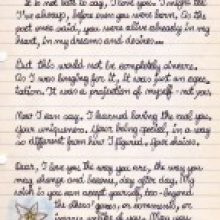 It is not late to say, I love you. I might be
I've always, before even you were born, As the
poet once said, you were alive already in my
heart, in my dreams and desires...
But this would not be completely sincere.
As I was longing for it, it was just an
It was a projection of myself - not you.
Now I can say, I learned loving the real you,
Your uniqueness. Your being special, in a way
so different from how I figured you, your choices.
Dear, I love you the way you are, the way you
may change and become, day after day. My
wish is you can accept yourself, too - beyond
the others'
of you. May you